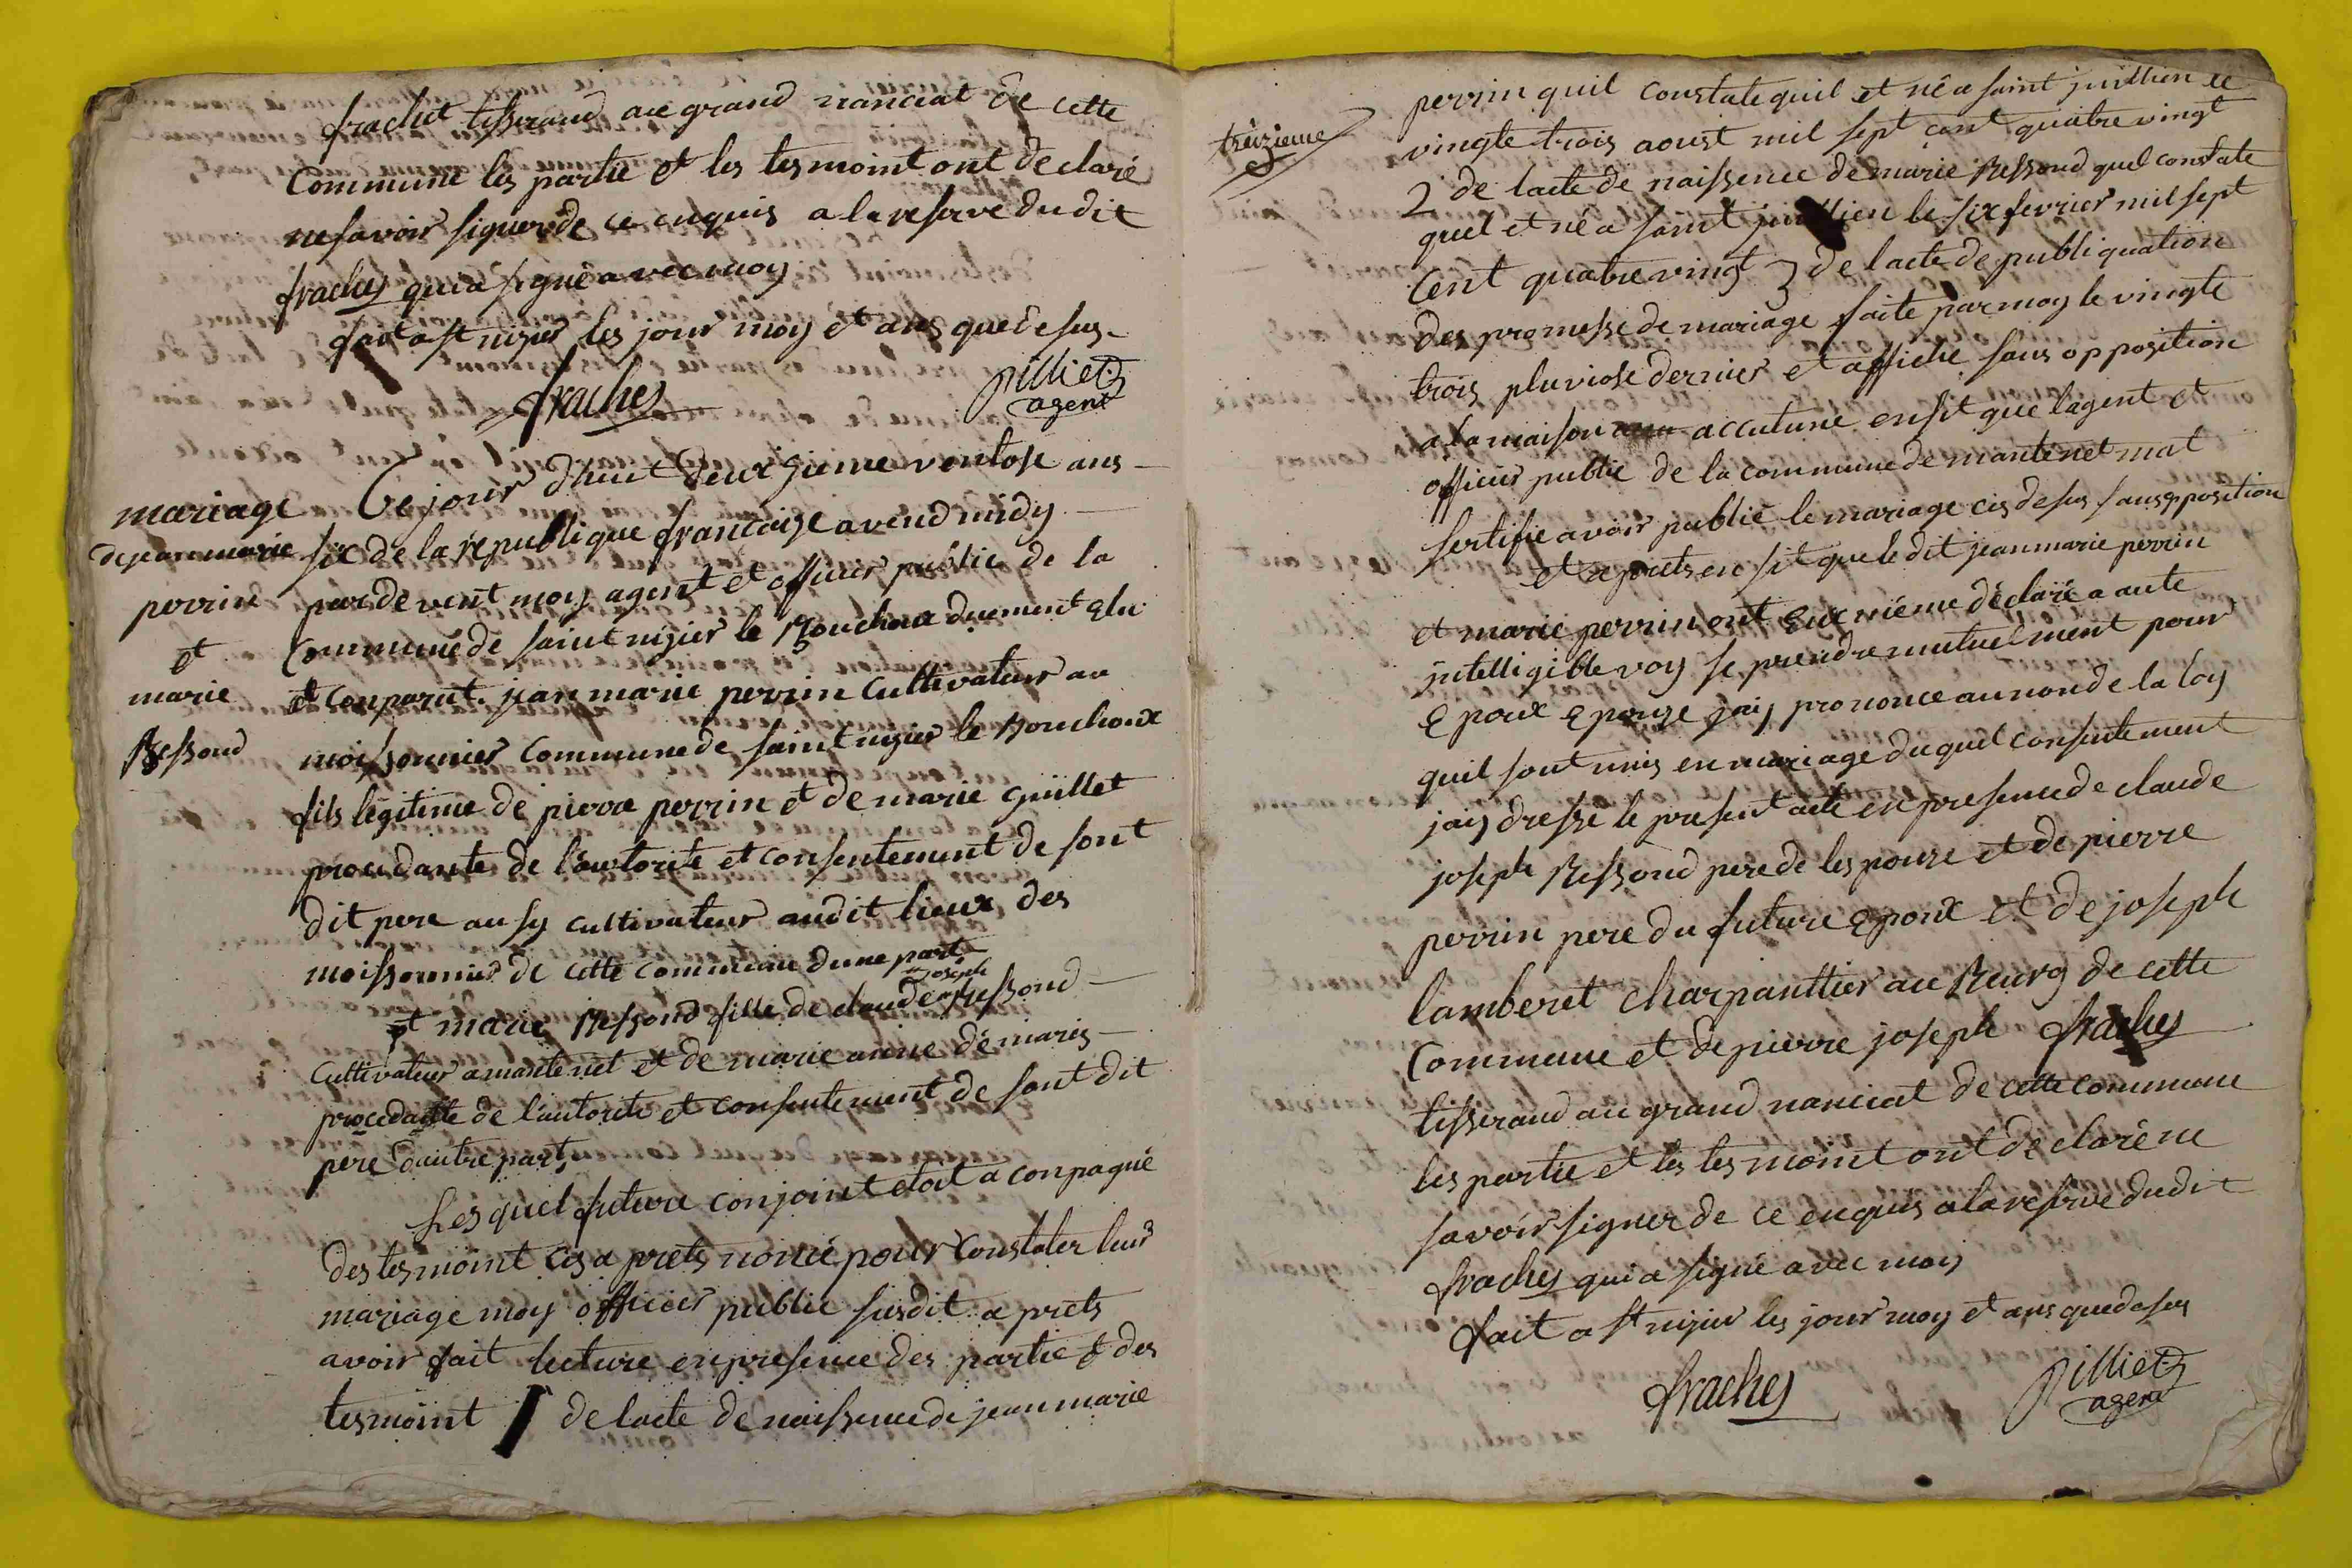 frachet tisserand au grand nanciat de cette
commune les partie et les tesmoint ont declaré
ne savoir signer de ce enquis a la reserve du dit
frachey qui a signé avec moy
fait a st nizier les jour moy et ans que desus
frachey
pilliet
agent
mariage
de jean marie
perrin
et
marie
Bessond
Ce jour dhuit deux zieme ventose ans
six de la republique francaize avend midy
par devent moy agent et officier public de la
Commune de saint nizier le Bouchoux duement Elu
et Conparut. jean marie perrin cultivateur au
moissonnier Commune de saint nizier le Bouchoux
fils legitime de pierre perrin et de marie guillet
procedante de l'autorite et consentement de sont
dit pere ausy cultivateur audit lieux des
moissonnier de cette commune dune part
et marie Bessond fille de claude joseph Bessond
Cultivateur a mantenet et de marie anne démaris
procedante de l'autorite et consentement de sont dit
pere dautre part,
Lesquel future conjoint etoit a conpagné
des tesmoint cis a prets nomé pour Constater leur
mariage moy officier public susdit a prets
avoir fait lecture en presence des partie et des
tesmoint 1 de lacte de naissence de jean marie
treizieme
perrin quil constate quil et né a saint juillien le
vingte trois aoust mil sept cent quatre vingt
2 de lacte de naissence de marie Bessond quel constate
quel et né a saint juillien le six fevrier mil sept
Cent quatre vingt 3 de lacte de publiquation
des promesse de mariage faite par moy le vingte
trois pluviose dernier et affiche sans opposition
a la maison accutumé ensit que lagent et
officier public de la commune de mantenet mat
sertifie avoir publié le mariage cis desus sans opposition
et a prets en sit que le dit jean marie perrin
et marie perrin ont Eux mième déclaré a aute
intelligible voy se prendre mutuelment pour
Epoux Epouze jaiy prononce au nond de la loy
quil sont unis en mariage duquel consentement
jaiy dresse le present acte en presence de claude
joseph Bessond pere de les pouze et de pierre
perrin pere du future Epoux et de joseph
lamberet charpanttier au Bourg de cette
Commune et de pierre joseph frachey
tisserand au grand nanciat de cette commune
les partie et les tesmoint ont declaré ne
savoir signer de ce enquis a la reserve dudit
frachey qui a signé avec moy
fait a st nizier les jour moy et ans que desus
frachey
pilliet
agent